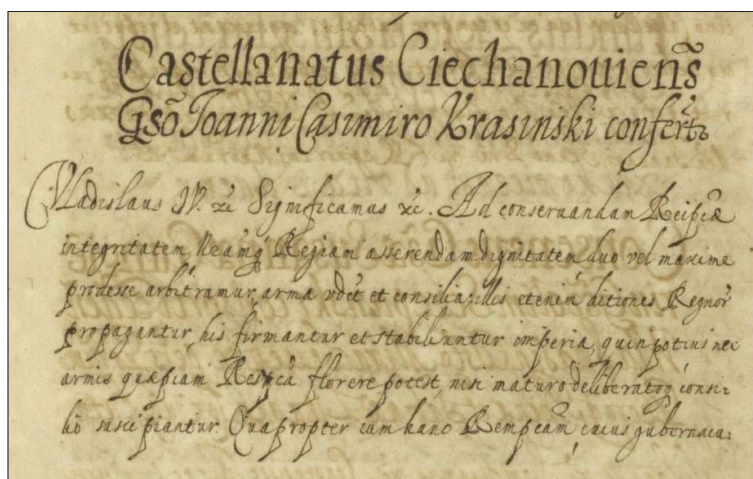 Castellanatus Ciechanouiens̃
Gsõ Joanni Casimiro Krasinski confert̃
Vladislaus IV. &c Significamus &c. Ad conseruandam Reipcæ
integritatem, Regiam asserendam dignitatem duo vel maxime
prodesse arbitramur, arma vdct et consilia: illis etenim ditiones Regnor
propagantur, his firmantur et stabiliuntur imperia, quin potius nec
armis quæpiam Respca florere potest, nisi maturo deliberatoq consi-
lio suscipiantur. Quapropter cum hanc Rempcam, cuius gubernacu-